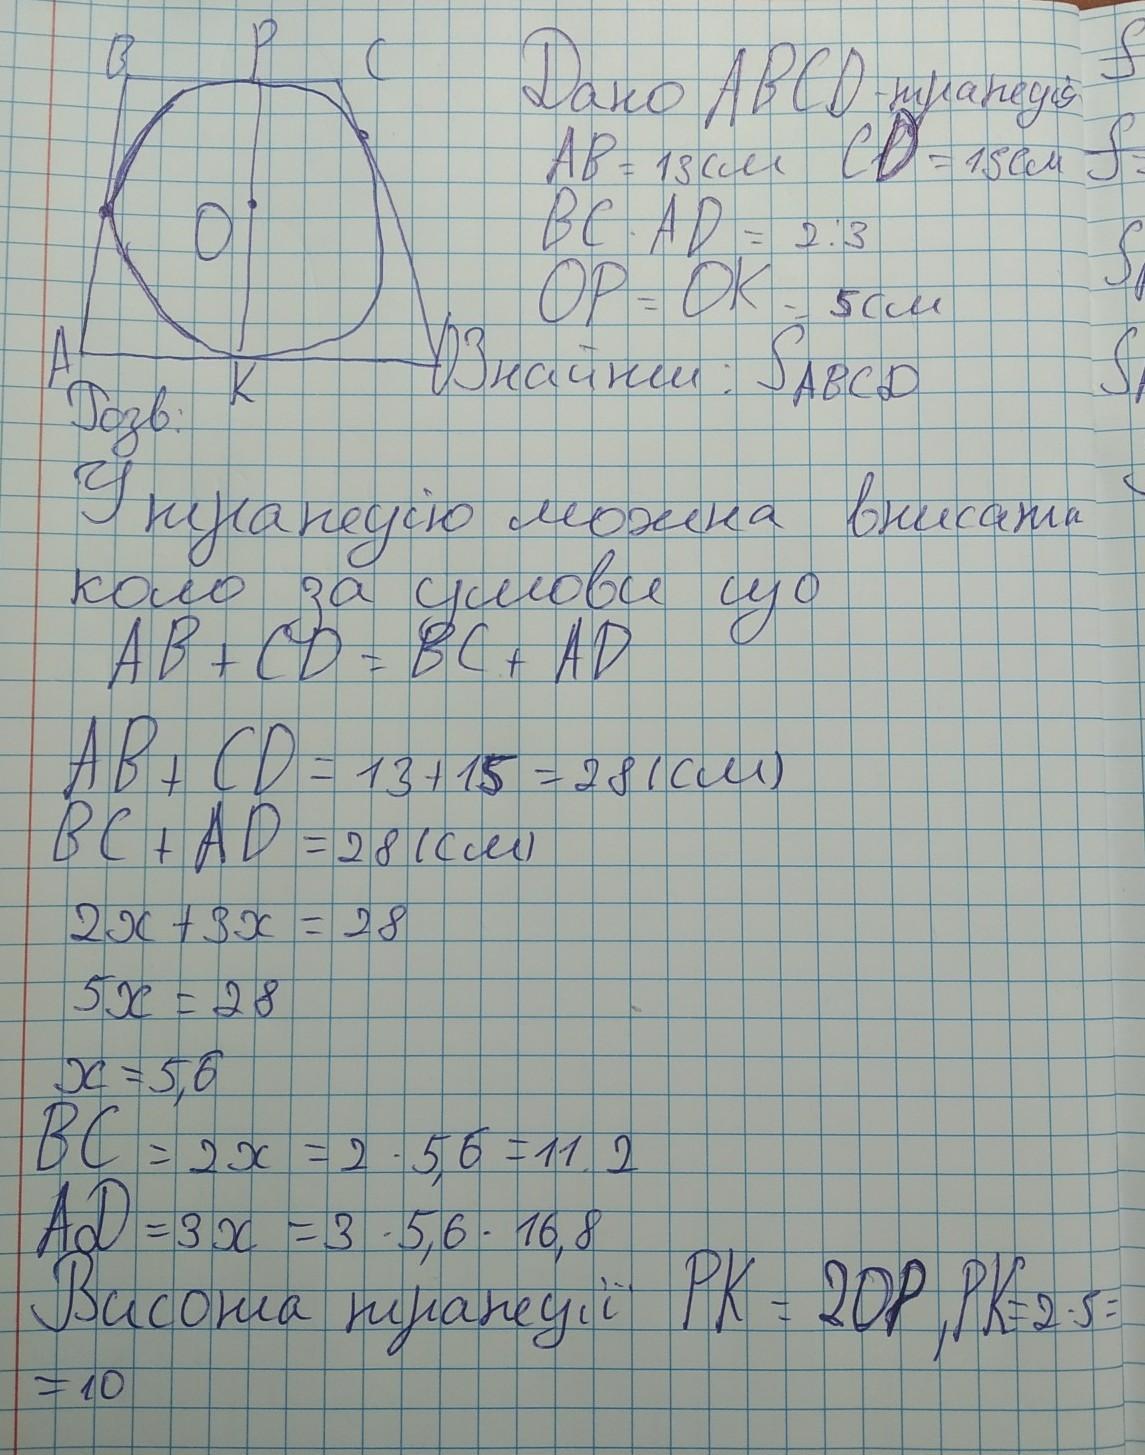 B P C
Дано ABCD-трапеція
AB = 13см CD = 15см
BC : AD = 2:3
O
OP = OK = 5см
A K D
Знайти: SABCD
Розв:
У трапецію можна вписати
коло за умови що
AB + CD = BC + AD
AB + CD = 13+15 = 28(см)
BC + AD = 28(см)
2x + 3x = 28
5x = 28
x = 5,6
BC = 2x = 2 · 5,6 = 11.2
AD = 3x = 3 · 5,6 · 16,8
Висота трапеції PK = 2OP, PK=2·5=
=10